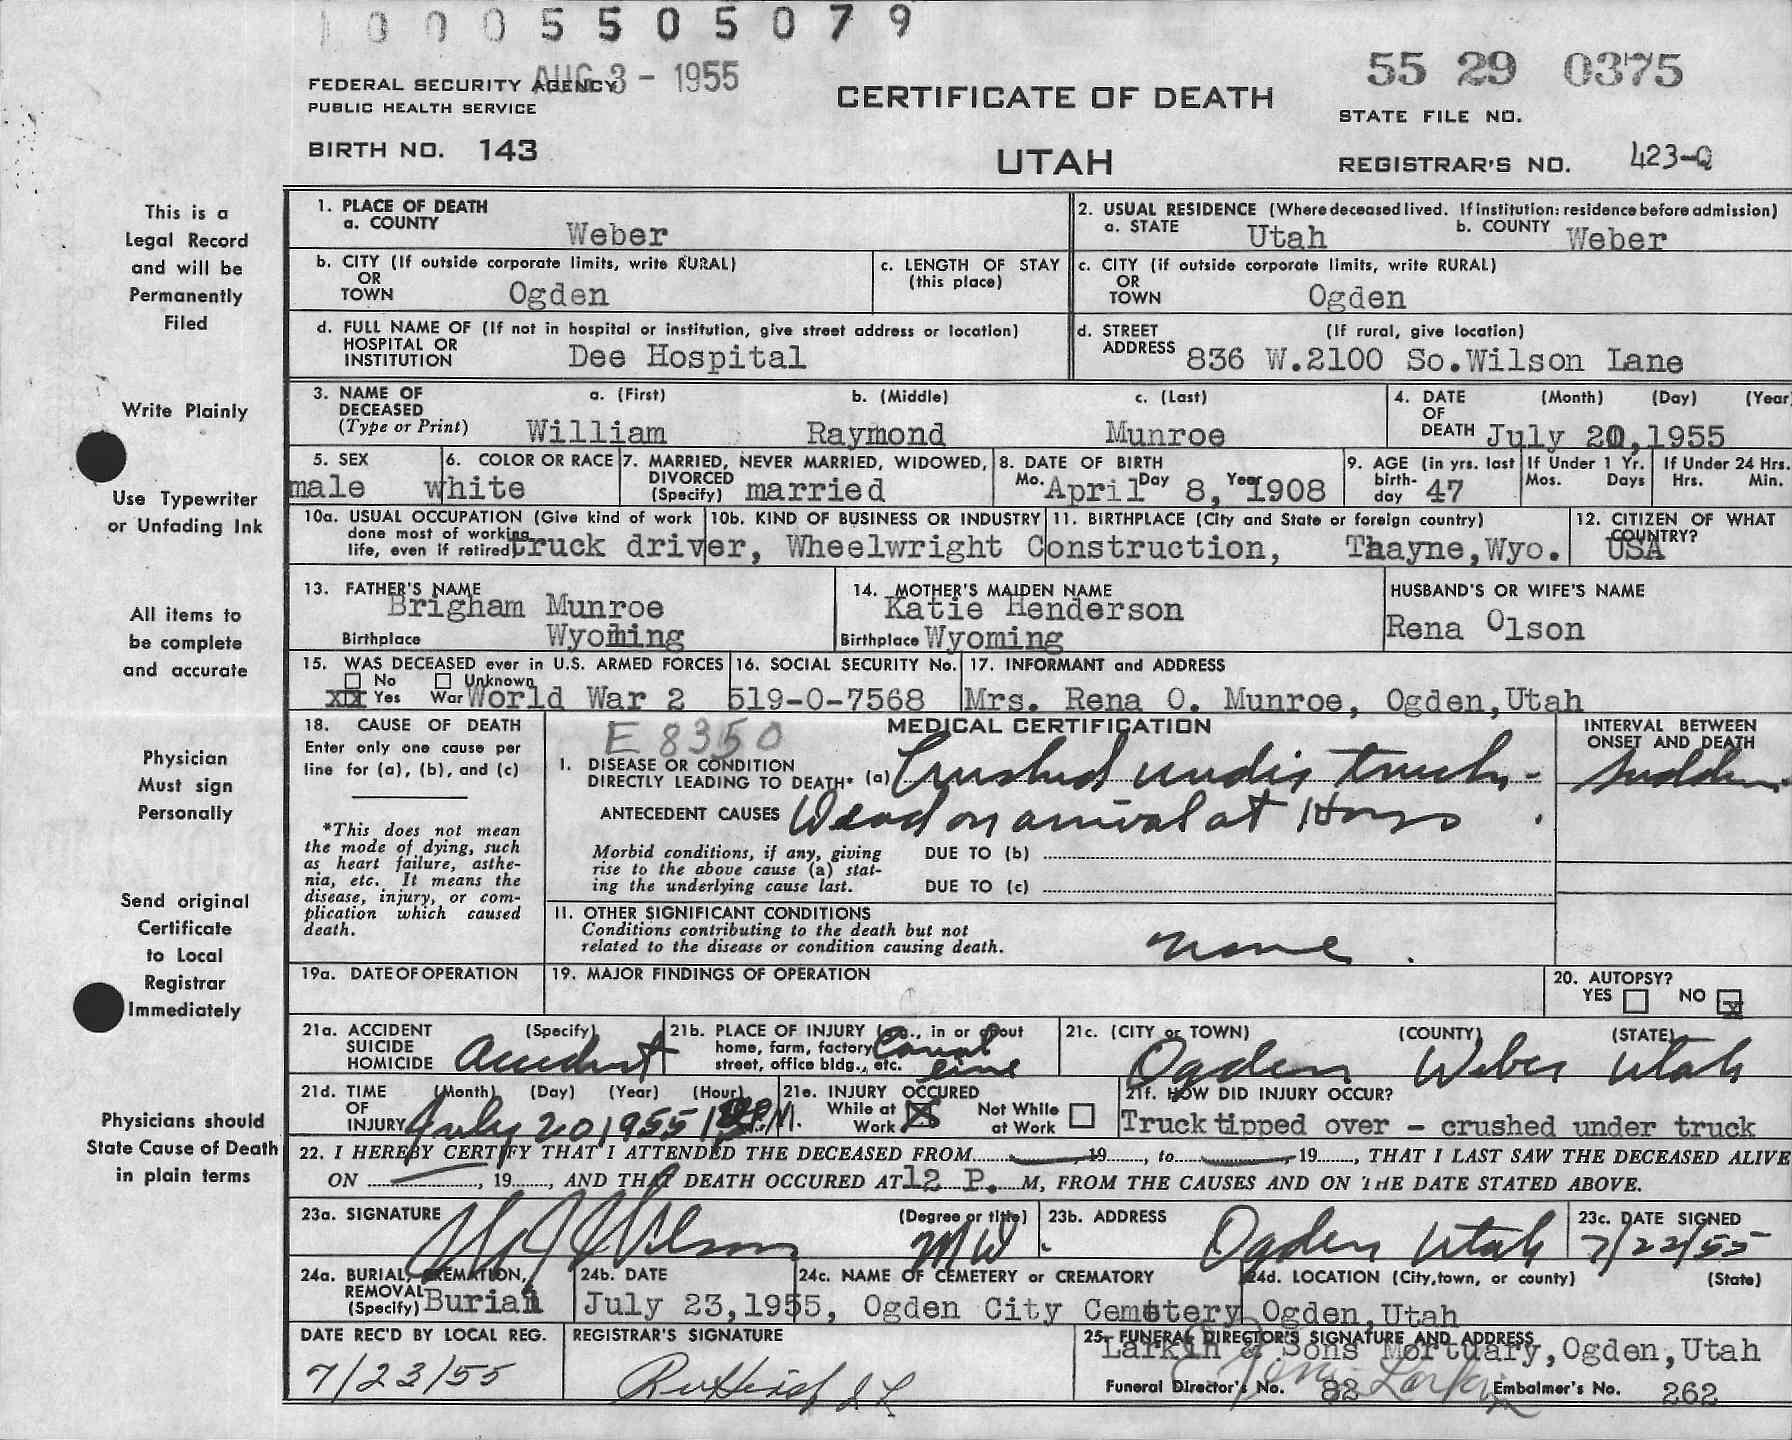 1 0 0 0 5 5 0 5 0 7 9
55 29 0375
FEDERAL SECURITY AGENCY AUG 3 - 1955
PUBLIC HEALTH SERVICE
CERTIFICATE OF DEATH
STATE FILE NO.
BIRTH NO. 143
UTAH
REGISTRAR'S NO. 423-Q
This is a
Legal Record
and will be
Permanently
Filed
Write Plainly
Use Typewriter
or Unfading Ink
All items to
be complete
and accurate
Physician
Must sign
Personally
Send original
Certificate
to Local
Registrar
Immediately
Physicians should
State Cause of Death
in plain terms
1. PLACE OF DEATH
a. COUNTY Weber
2. USUAL RESIDENCE (Where deceased lived. If institution: residence before admission)
a. STATE Utah b. COUNTY Weber
b. CITY (If outside corporate limits, write RURAL)
OR
TOWN Ogden
c. LENGTH OF STAY
(this place)
c. CITY (if outside corporate limits, write RURAL)
OR
TOWN Ogden
d. FULL NAME OF (If not in hospital or institution, give street address or location)
HOSPITAL OR
INSTITUTION Dee Hospital
d. STREET (If rural, give location)
ADDRESS 836 W.2100 So.Wilson Lane
3. NAME OF DECEASED
(Type or Print)
a. (First) b. (Middle) c. (Last)
William Raymond Munroe
4. DATE (Month) (Day) (Year
OF
DEATH July 20,1955
5. SEX
male
6. COLOR OR RACE
white
7. MARRIED, NEVER MARRIED, WIDOWED,
DIVORCED
(Specify) married
8. DATE OF BIRTH
Mo. April Day 8, Year 1908
9. AGE (in yrs. last
birth-
day 47
If Under 1 Yr.
Mos. Days
If Under 24 Hrs.
Hrs. Min.
10a. USUAL OCCUPATION (Give kind of work
done most of working
life, even if retired truck driver,
10b. KIND OF BUSINESS OR INDUSTRY
Wheelwright Construction,
11. BIRTHPLACE (City and State or foreign country)
Thayne,Wyo.
12. CITIZEN OF WHAT
COUNTRY?
USA
13. FATHER'S NAME
Brigham Munroe
Birthplace Wyoming
14. MOTHER'S MAIDEN NAME
Katie Henderson
Birthplace Wyoming
HUSBAND'S OR WIFE'S NAME
Rena Olson
15. WAS DECEASED ever in U.S. ARMED FORCES
No Unknown
xix Yes War World War 2
16. SOCIAL SECURITY No.
519-0-7568
17. INFORMANT and ADDRESS
Mrs. Rena O. Munroe, Ogden,Utah
18. CAUSE OF DEATH
Enter only one cause per
line for (a), (b), and (c)
*This does not mean
the mode of dying, such
as heart failure, asthe-
nia, etc. It means the
disease, injury, or com-
plication which caused
death.
E 8350
MEDICAL CERTIFICATION
INTERVAL BETWEEN
ONSET AND DEATH
I. DISEASE OR CONDITION
DIRECTLY LEADING TO DEATH* (a) Crushed under truck - Sudden
ANTECEDENT CAUSES Dead on arrival at Hosp
Morbid conditions, if any, giving
rise to the above cause (a) stat-
ing the underlying cause last.
DUE TO (b)
DUE TO (c)
II. OTHER SIGNIFICANT CONDITIONS
Conditions contributing to the death but not
related to the disease or condition causing death. none.
19a. DATE OF OPERATION
19. MAJOR FINDINGS OF OPERATION
20. AUTOPSY?
YES NO x
21a. ACCIDENT (Specify)
SUICIDE
HOMICIDE Accident
21b. PLACE OF INJURY (e.g., in or about
home, farm, factory
street, office bldg., etc. Canal
21c. (CITY or TOWN) (COUNTY) (STATE)
Ogden Weber Utah
21d. TIME (Month) (Day) (Year) (Hour)
OF
INJURY July 20 1955
21e. INJURY OCCURED
While at Work X Not While at Work
21f. HOW DID INJURY OCCUR?
Truck tipped over - crushed under truck
22. I HEREBY CERTIFY THAT I ATTENDED THE DECEASED FROM 19, to 19, THAT I LAST SAW THE DECEASED ALIVE
ON , 19, AND THAT DEATH OCCURED AT 12 P. M, FROM THE CAUSES AND ON THE DATE STATED ABOVE.
23a. SIGNATURE (Degree or title)
Wilson MD.
23b. ADDRESS
Ogden Utah
23c. DATE SIGNED
7/22/55
24a. BURIAL, CREMATION,
REMOVAL
(Specify) Burial
24b. DATE
July 23,1955,
24c. NAME OF CEMETERY or CREMATORY
Ogden City Cemetery
24d. LOCATION (City,town, or county) (State)
Ogden,Utah
DATE REC'D BY LOCAL REG.
7/23/55
REGISTRAR'S SIGNATURE
25. FUNERAL DIRECTOR'S SIGNATURE AND ADDRESS
Larkin & Sons Mortuary,Ogden,Utah
Larkin
Funeral Director's No. 82 Embalmer's No. 262